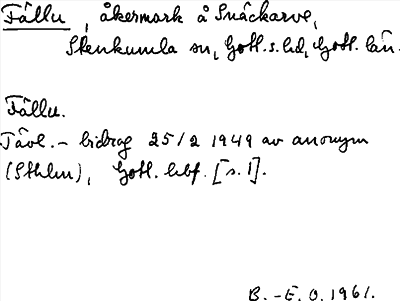 Fållu, åkermark å Snäckarve,
Stenkumla sn, Gotl. s. hd, Gotl. län.
Fållu.
Tävl.-bidrag 25/2 1949 av anonym
(Sthlm), Gotl. hbf. [s. 1].
B.-E. O. 1961.